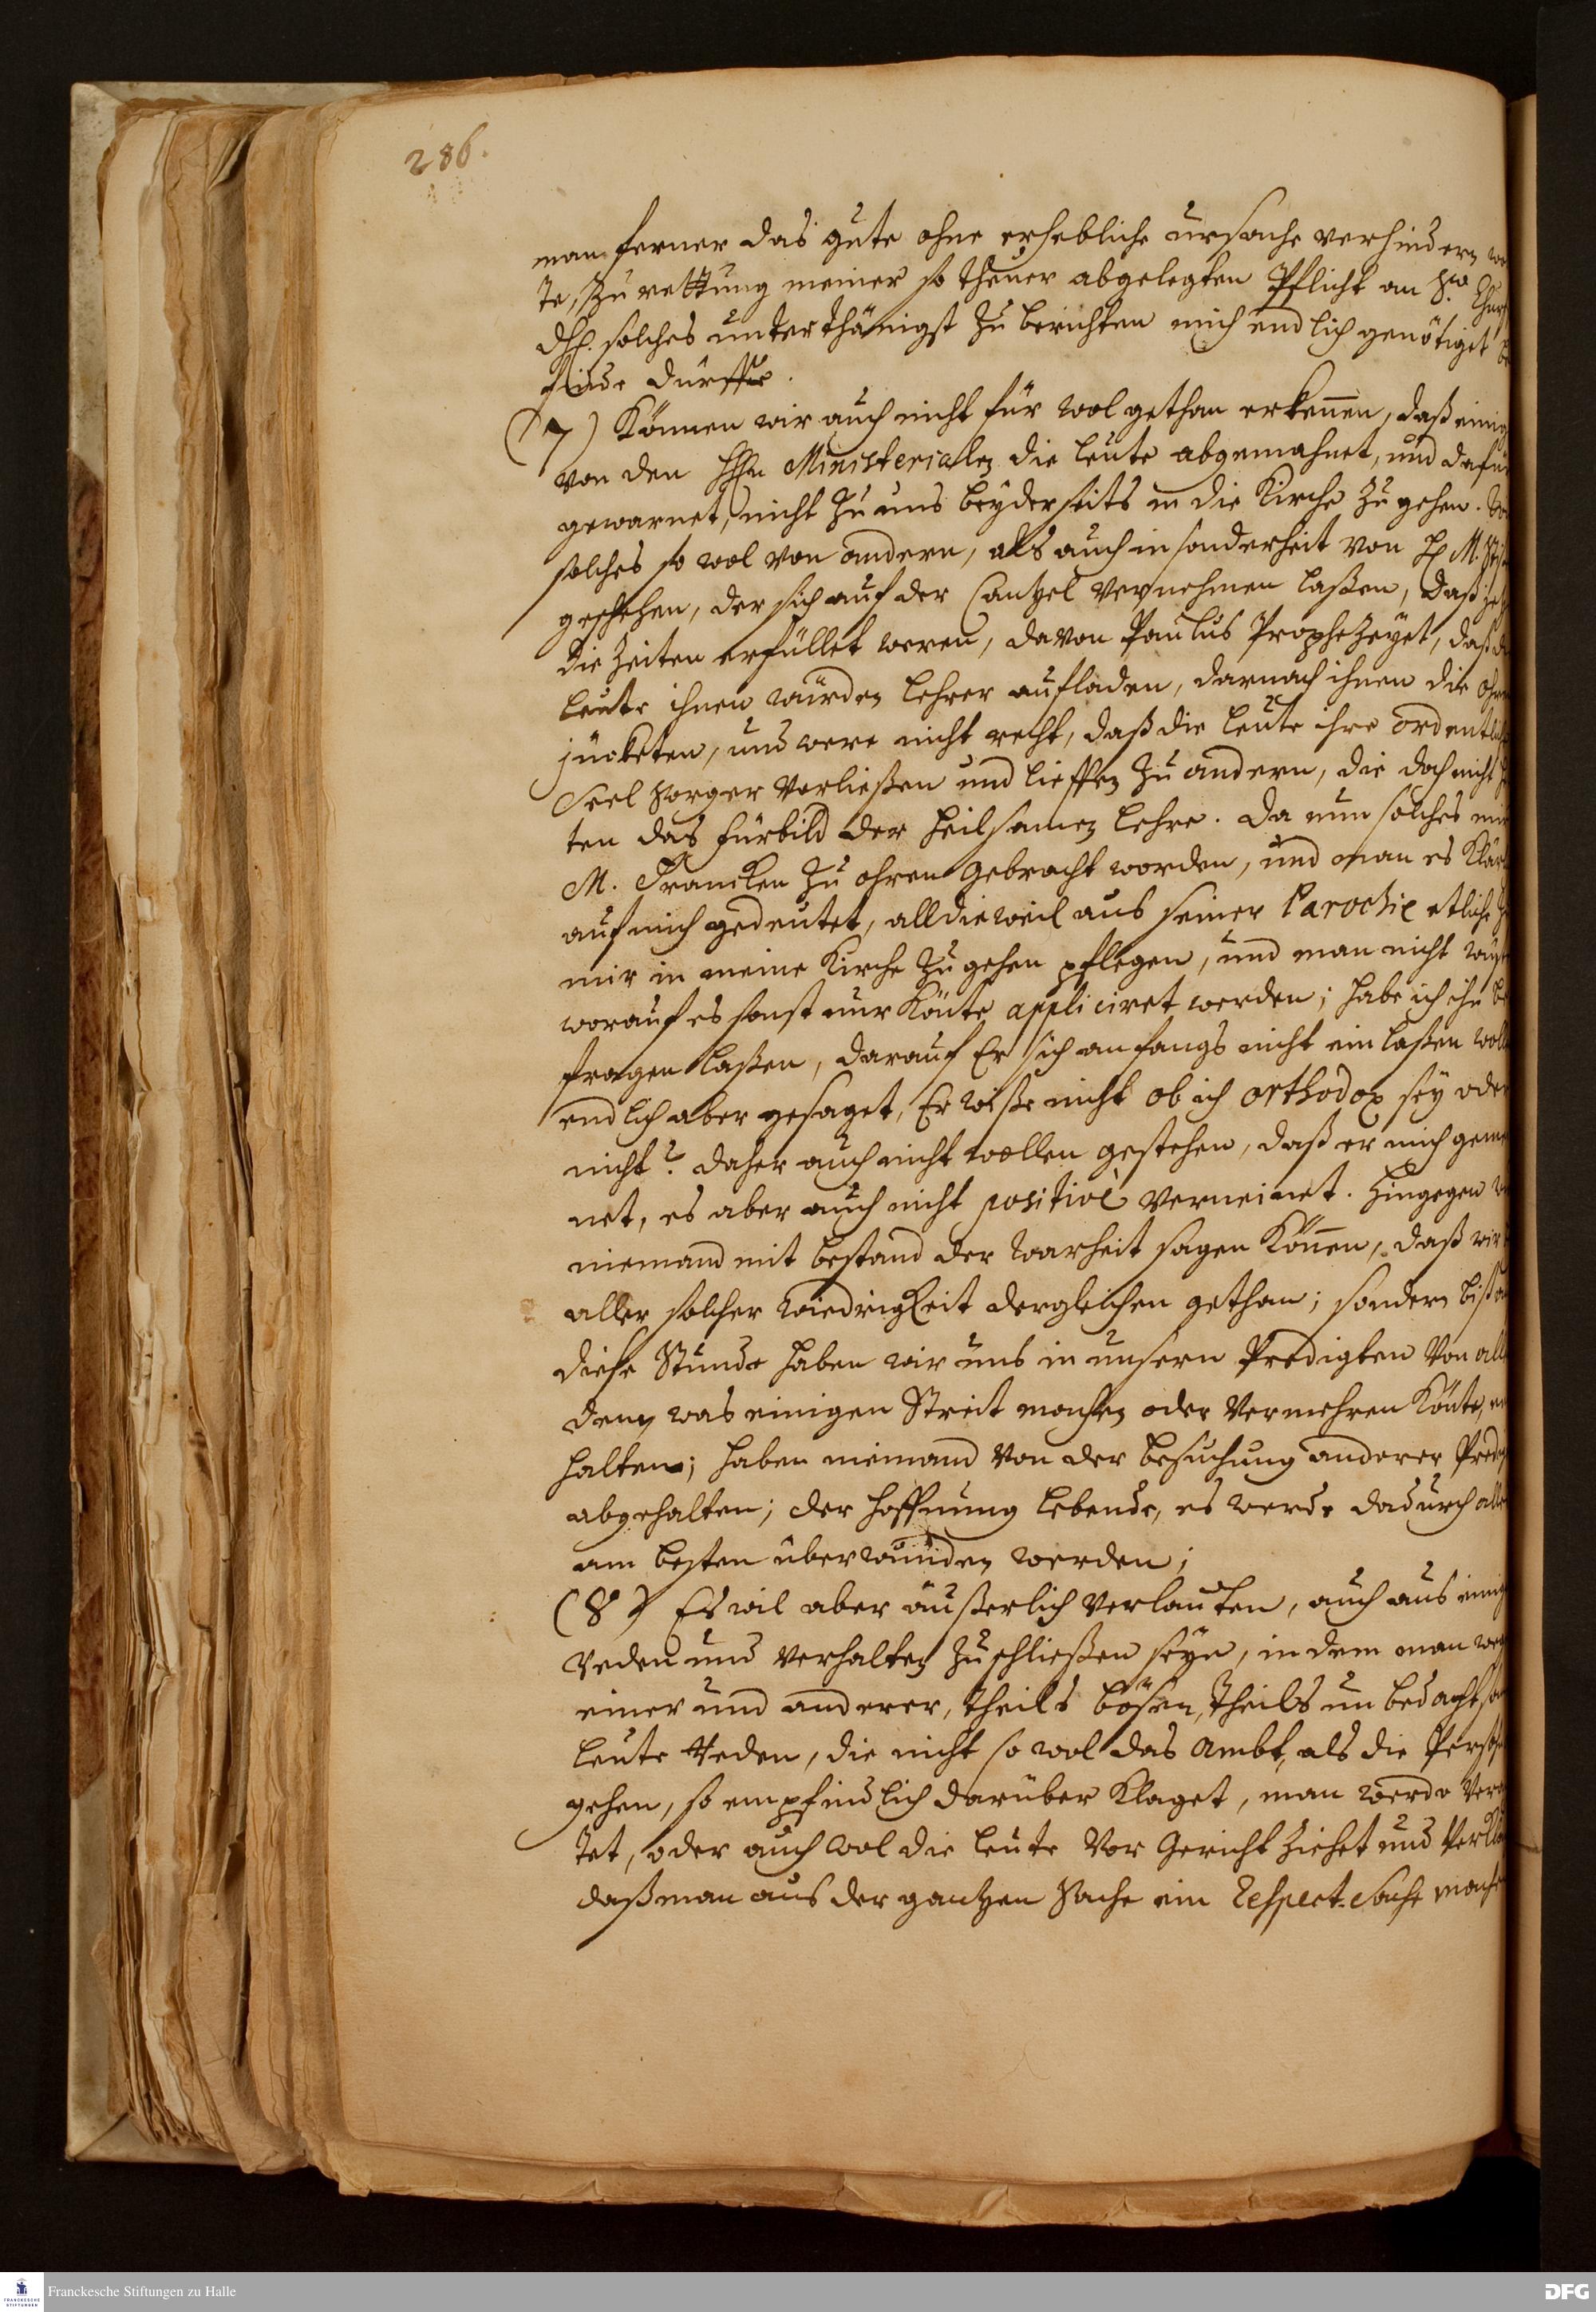 286.
man ferner das gute ohne erhebliche ursache verhindern
te, zu rettung meiner so theuer abgelegten Pflicht an Sr. Churf
dhl. solches unterthänigst zu berichten mich endlich genötiget
finde dürffte.
(7) Können wir auch nicht für wol gethan erkennen, daß einig
von den HHn Ministerialen die leute abgemahnet, und dafür
gewarnet, nicht zu uns beyderseits in die Kirche zu gehen.
solches so wol von andern, als auch in sonderheit von H M.
geschehen, der sich auf der Cantzel vernehmen laßen, daß
die Zeiten erfüllet weren, davon Paulus Prophezeyet, daß
leute ihnen würden lehrer aufladen, darnach ihnen die ohren
jücketen, und were nicht recht, daß die leute ihre ordentlich
Seel Sorger verließen und lieffen zu andern, die doch nicht
ten das fürbild der heilsamen lehre. Da nun solches mir
M. Francken zu ohren gebracht worden, und man es klär
auf mich gedeutet, alldieweil aus seiner Parochie etliche
mir in meine Kirche zu gehen pflegen, und man nicht
worauf es sonst nur könte appliciret werden; habe ich ihn be
fragen laßen, darauf Er sich anfangs nicht ein laßen woll
endlich aber gesaget, Er wiße nicht ob ich orthodox sey oder
nicht? daher auch nicht wollen gestehen, daß er mich gemei
net, es aber auch nicht positivè verneinet. Hingegen
niemand mit bestand der warheit sagen können, daß wir
aller solcher wiedrigkeit dergleichen gethan; sondern biß an
diese Stunde haben wir uns in unsern Predigten von all
dem, was einigen Streit machen oder vermehren könte,
halten; haben niemand von der besuchung anderer Predig
abgehalten; der hoffnung lebende, es werde dadurch alle
am besten überwunden werden;
(8) Es wil aber äußerlich verlauten, auch aus einig
reden und verhalten zu schließen seyn, in dem man weg
einer und anderer, theils bösen, theils un bedachtsa
leute reden, die nicht so wol das ambt, als die Person
gehen, so empfindlich darüber klaget, man werde ver
tet, oder auch wol die leute vor Gericht ziehet und verkla
daß man aus der gantzen Sache ein Respect-Sache mache
Franckesche Stiftungen zu Halle
FRANCKESCHE STIFTUNGEN
DFG